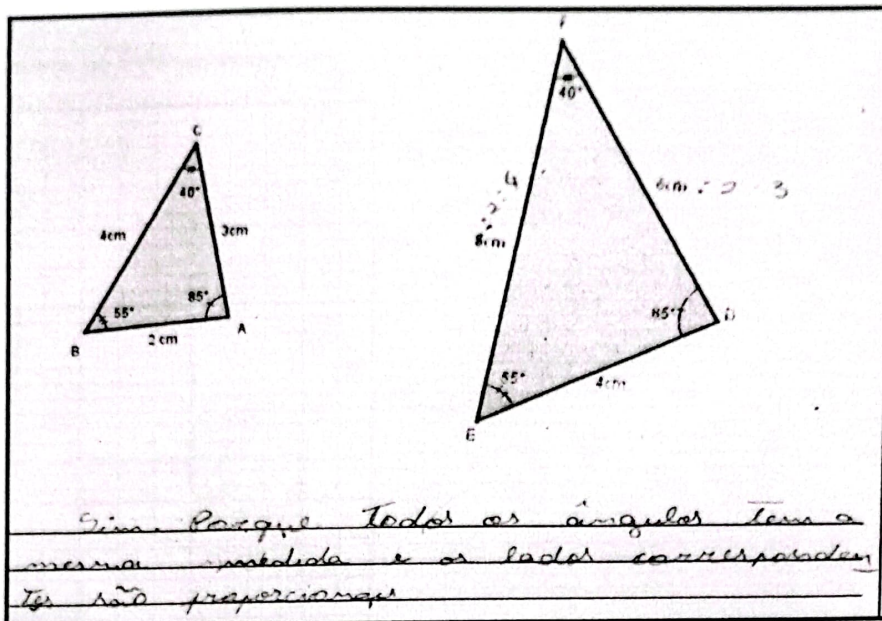 F
40°
C
40°
4cm
3cm
8cm : 2 = 4
6cm : 2 = 3
55°
85°
B
2cm
A
85°
D
55°
4cm
E
Sim Porque Todos os ângulos tem a
mesma medida e os lados correspondem
tes são proporcionais